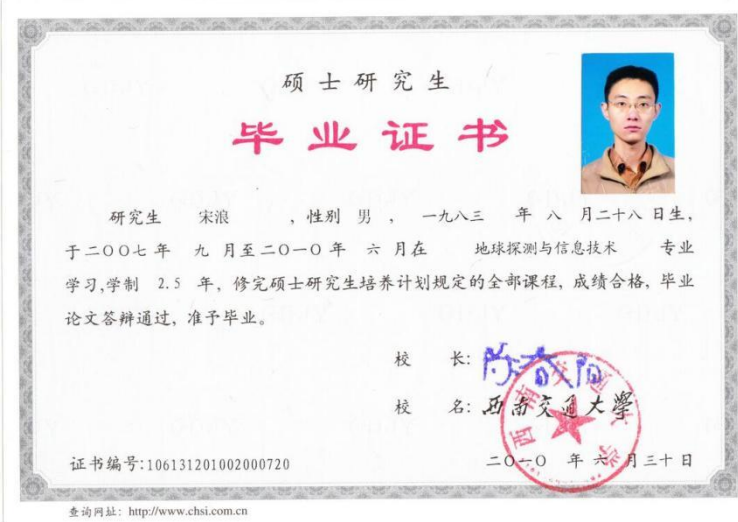 硕士研究生
毕业证书
研究生 宋浪 ，性别 男 ， 一九八三 年 八 月二十八 日生，
于二〇〇七 年 九 月至二〇一〇 年 六 月在 地球探测与信息技术 专业
学习,学制 2.5 年，修完硕士研究生培养计划规定的全部课程，成绩合格，毕业
论文答辩通过，准予毕业。
校 长：
校 名：西南交通大学
西南交通大学
证书编号:106131201002000720
二〇一〇 年 六 月三十日
查询网址：http://www.chsi.com.cn